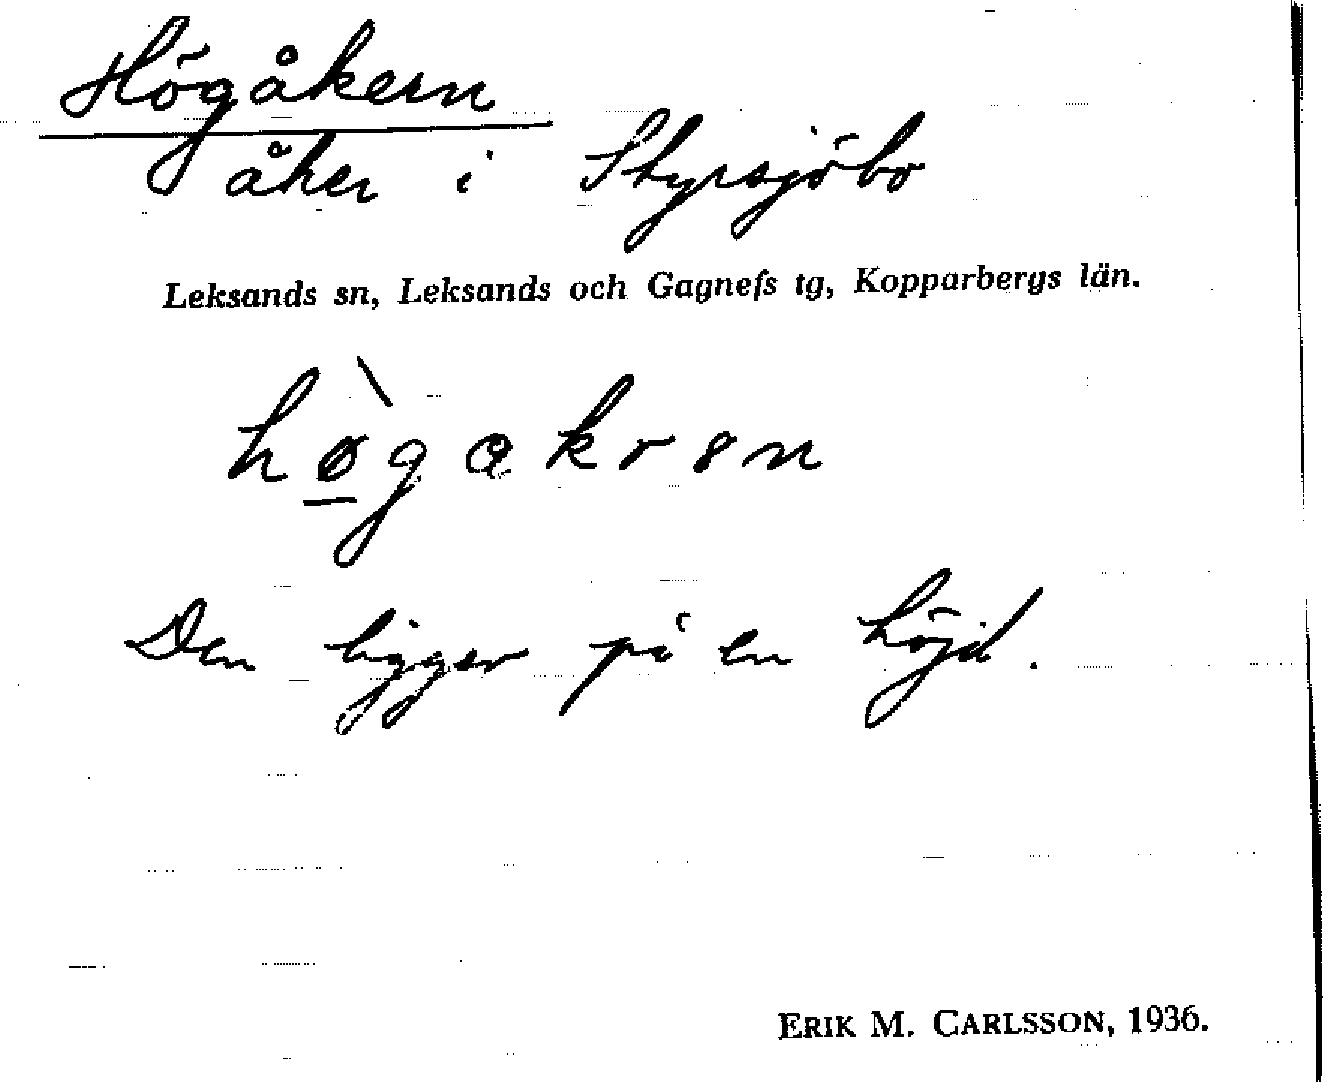 Högåkern
åker i Styrsjöbo
Leksands sn, Leksands och Gagnefs tg, Kopparbergs län.
Den ligger på en höjd.
ERIK M. CARLSSON, 1936.